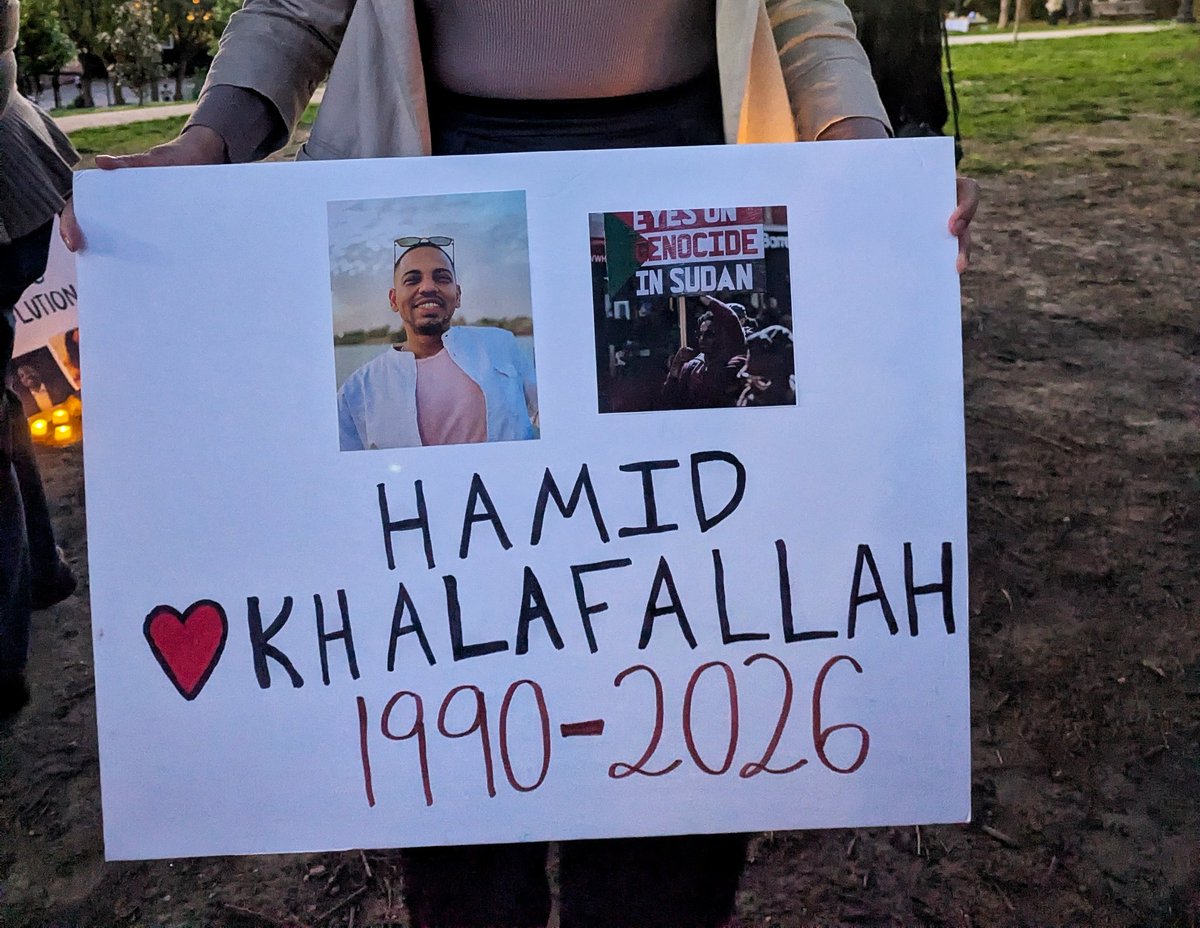 EYES ON
GENOCIDE
IN SUDAN
HAMID
KHALAFALLAH
1990-2026
LUTION